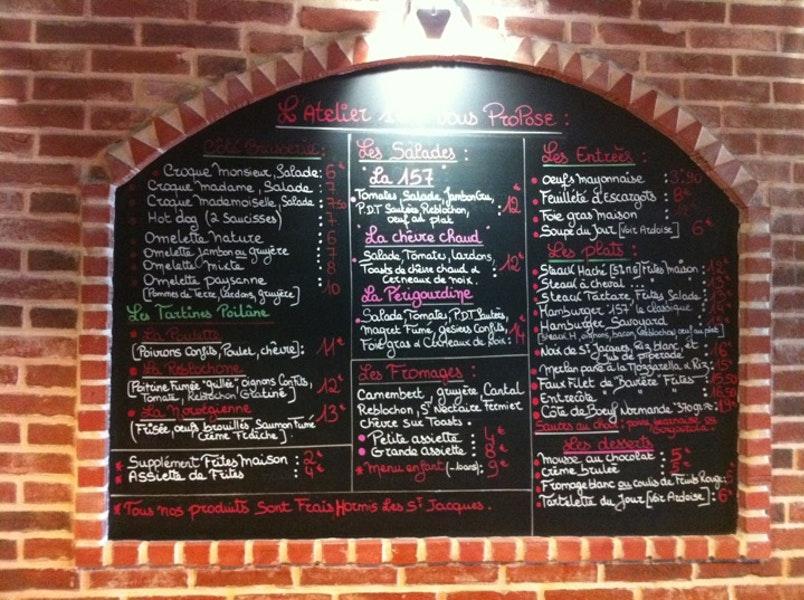 L'Atelier vous ProPose :
Côté Brasserie :
Croque Monsieur, Salade : 6€
Croque madame, Salade : 7
Croque mademoiselle, Salade : 7.50
Hot dog (2 Saucisses) : 7
Omelette nature : 6
Omelette Jambon ou gruyère : 7
Omelette mixte : 8
Omelette paysanne : 10
[Pommes de Terre, Lardons, gruyère]
Les Tartines Poilâne
La Poulette
[Poivrons Confits, Poulet, chèvre] : 11€
La Reblochone
[Poitrine Fumée "grillée", oignons Confits, 12€
Tomate, Reblochon Gratiné]
La Norvégienne
[Frisée, oeufs brouillés, Saumon Fumé 13€
Crème Fraîche]
Supplément Frites Maison : 2€
Assiette de Frites : 4€
Les Salades :
La 157
Tomates, Salade, Jambon Cru,
P.D.T Sautées, Reblochon, : 12€
oeuf au plat
La chèvre chaud
Salade, Tomates, Lardons,
Toasts de chèvre chaud & : 12€
Cerneaux de noix.
La Périgourdine
Salade, Tomates, P.D.T Sautées,
Magret Fumé, gésiers Confits,
Foie gras & Cerneaux de noix : 14€
Les Fromages :
Camembert, gruyère Cantal
Reblochon, St Nectaire Fermier
Chèvre sur Toasts.
Petite assiette : 4€
Grande assiette : 8€
Menu enfant (-10ans) : 9€
Les Entrées :
oeufs mayonnaise : 3.90
Feuilleté d'Escargots : 8€
Foie gras maison :
Soupe du Jour [Voir Ardoise] : 6€
Les plats :
Steack Haché Frites maison :
Steack à cheval
Steack Tartare, Frites, Salade
Hamburger "157" le classique
Hamburger Savoyard
oignon, bacon, Reblochon, oeuf au plat]
Noix de St Jacques, Riz blanc, et 16€
jus de piperade
Merlan pané à la Mozzarella & Riz : 15€
Faux Filet de Bavière Frites : 15.50
Entrecôte " : 16.50
Côte de Boeuf Normande : 19€
Sauces au choix : poivre, béarnaise
Les desserts
Mousse au chocolat : 5€
Crème brulée : 5
Fromage blanc au coulis de Fruits Rouge : 5€
Tartelette du Jour [Voir Ardoise] : 6
*Tous nos produits Sont Frais Hormis Les St Jacques.